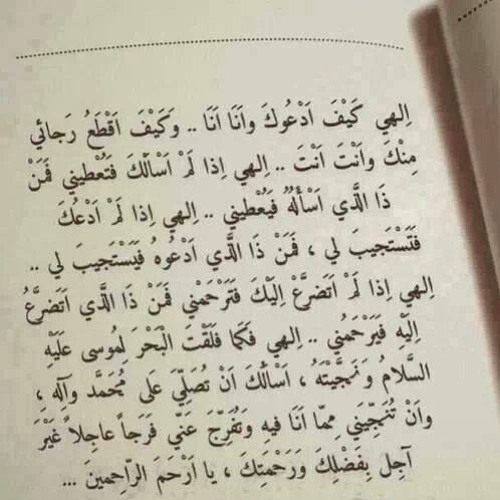 اِلهي كَيْفَ اَدْعُوكَ وَاَنَا اَنَا .. وَكَيْفَ اَقْطَعُ رَجائي
مِنْكَ وَاَنْتَ اَنْتَ .. اِلهي اِذا لَمْ اَسْأَلْكَ فَتُعْطِيني فَمَنْ
ذَا الَّذي اَسْأَلُهُ فَيُعْطيني .. اِلهي اِذا لَمْ اَدْعُكَ
فَتَسْتَجيبَ لي ، فَمَنْ ذَا الَّذي اَدْعُوهُ فَيَسْتَجيبَ لي ..
اِلهي اِذا لَمْ اَتَضرَّعْ اِلَيْكَ فَتَرْحَمْني فَمَنْ ذَا الَّذي اَتَضرَّعُ
اِلَيْهِ فَيَرْحَمُني .. اِلهي فَكَما فَلَقْتَ الْبَحْرَ لِمُوسى عَلَيْهِ
السَّلامُ وَنَجَّيْتَهُ ، اَسْأَلُكَ اَنْ تُصَلِّيَ عَلى مُحَمَّد وَآلِهِ ،
وَاَنْ تُنَجِّيَني مِمّا اَنَا فيهِ وَتُفَرِّجَ عَنّي فَرَجاً عاجِلاً غَيْرَ
آجِل بِفَضْلِكَ وَرَحْمَتِكَ ، يا اَرْحَمَ الرّاحِمينَ ...